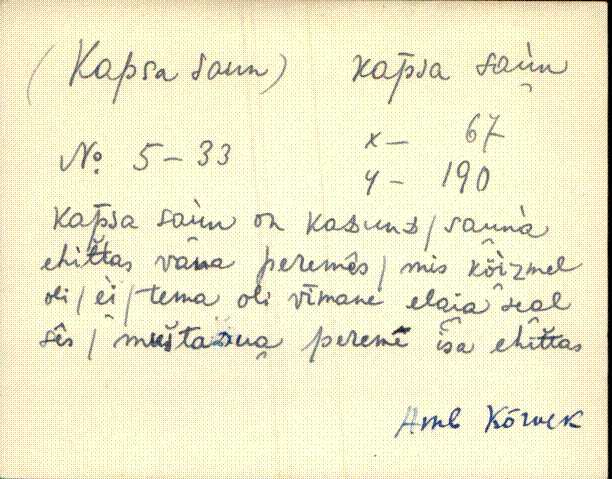 (Kapsa saun) kap̄sa sau̬n
№. 5-33 x- 67
y- 190
kap̄sa saùn on kaᴅunᴅ / sauna
ehit̆tas vâna peremês / mis kŏìzmel
oli / eì / tema oli vīmane elaia seal
sês / peremē îsa ehit̆tas
Amb Kõrvek